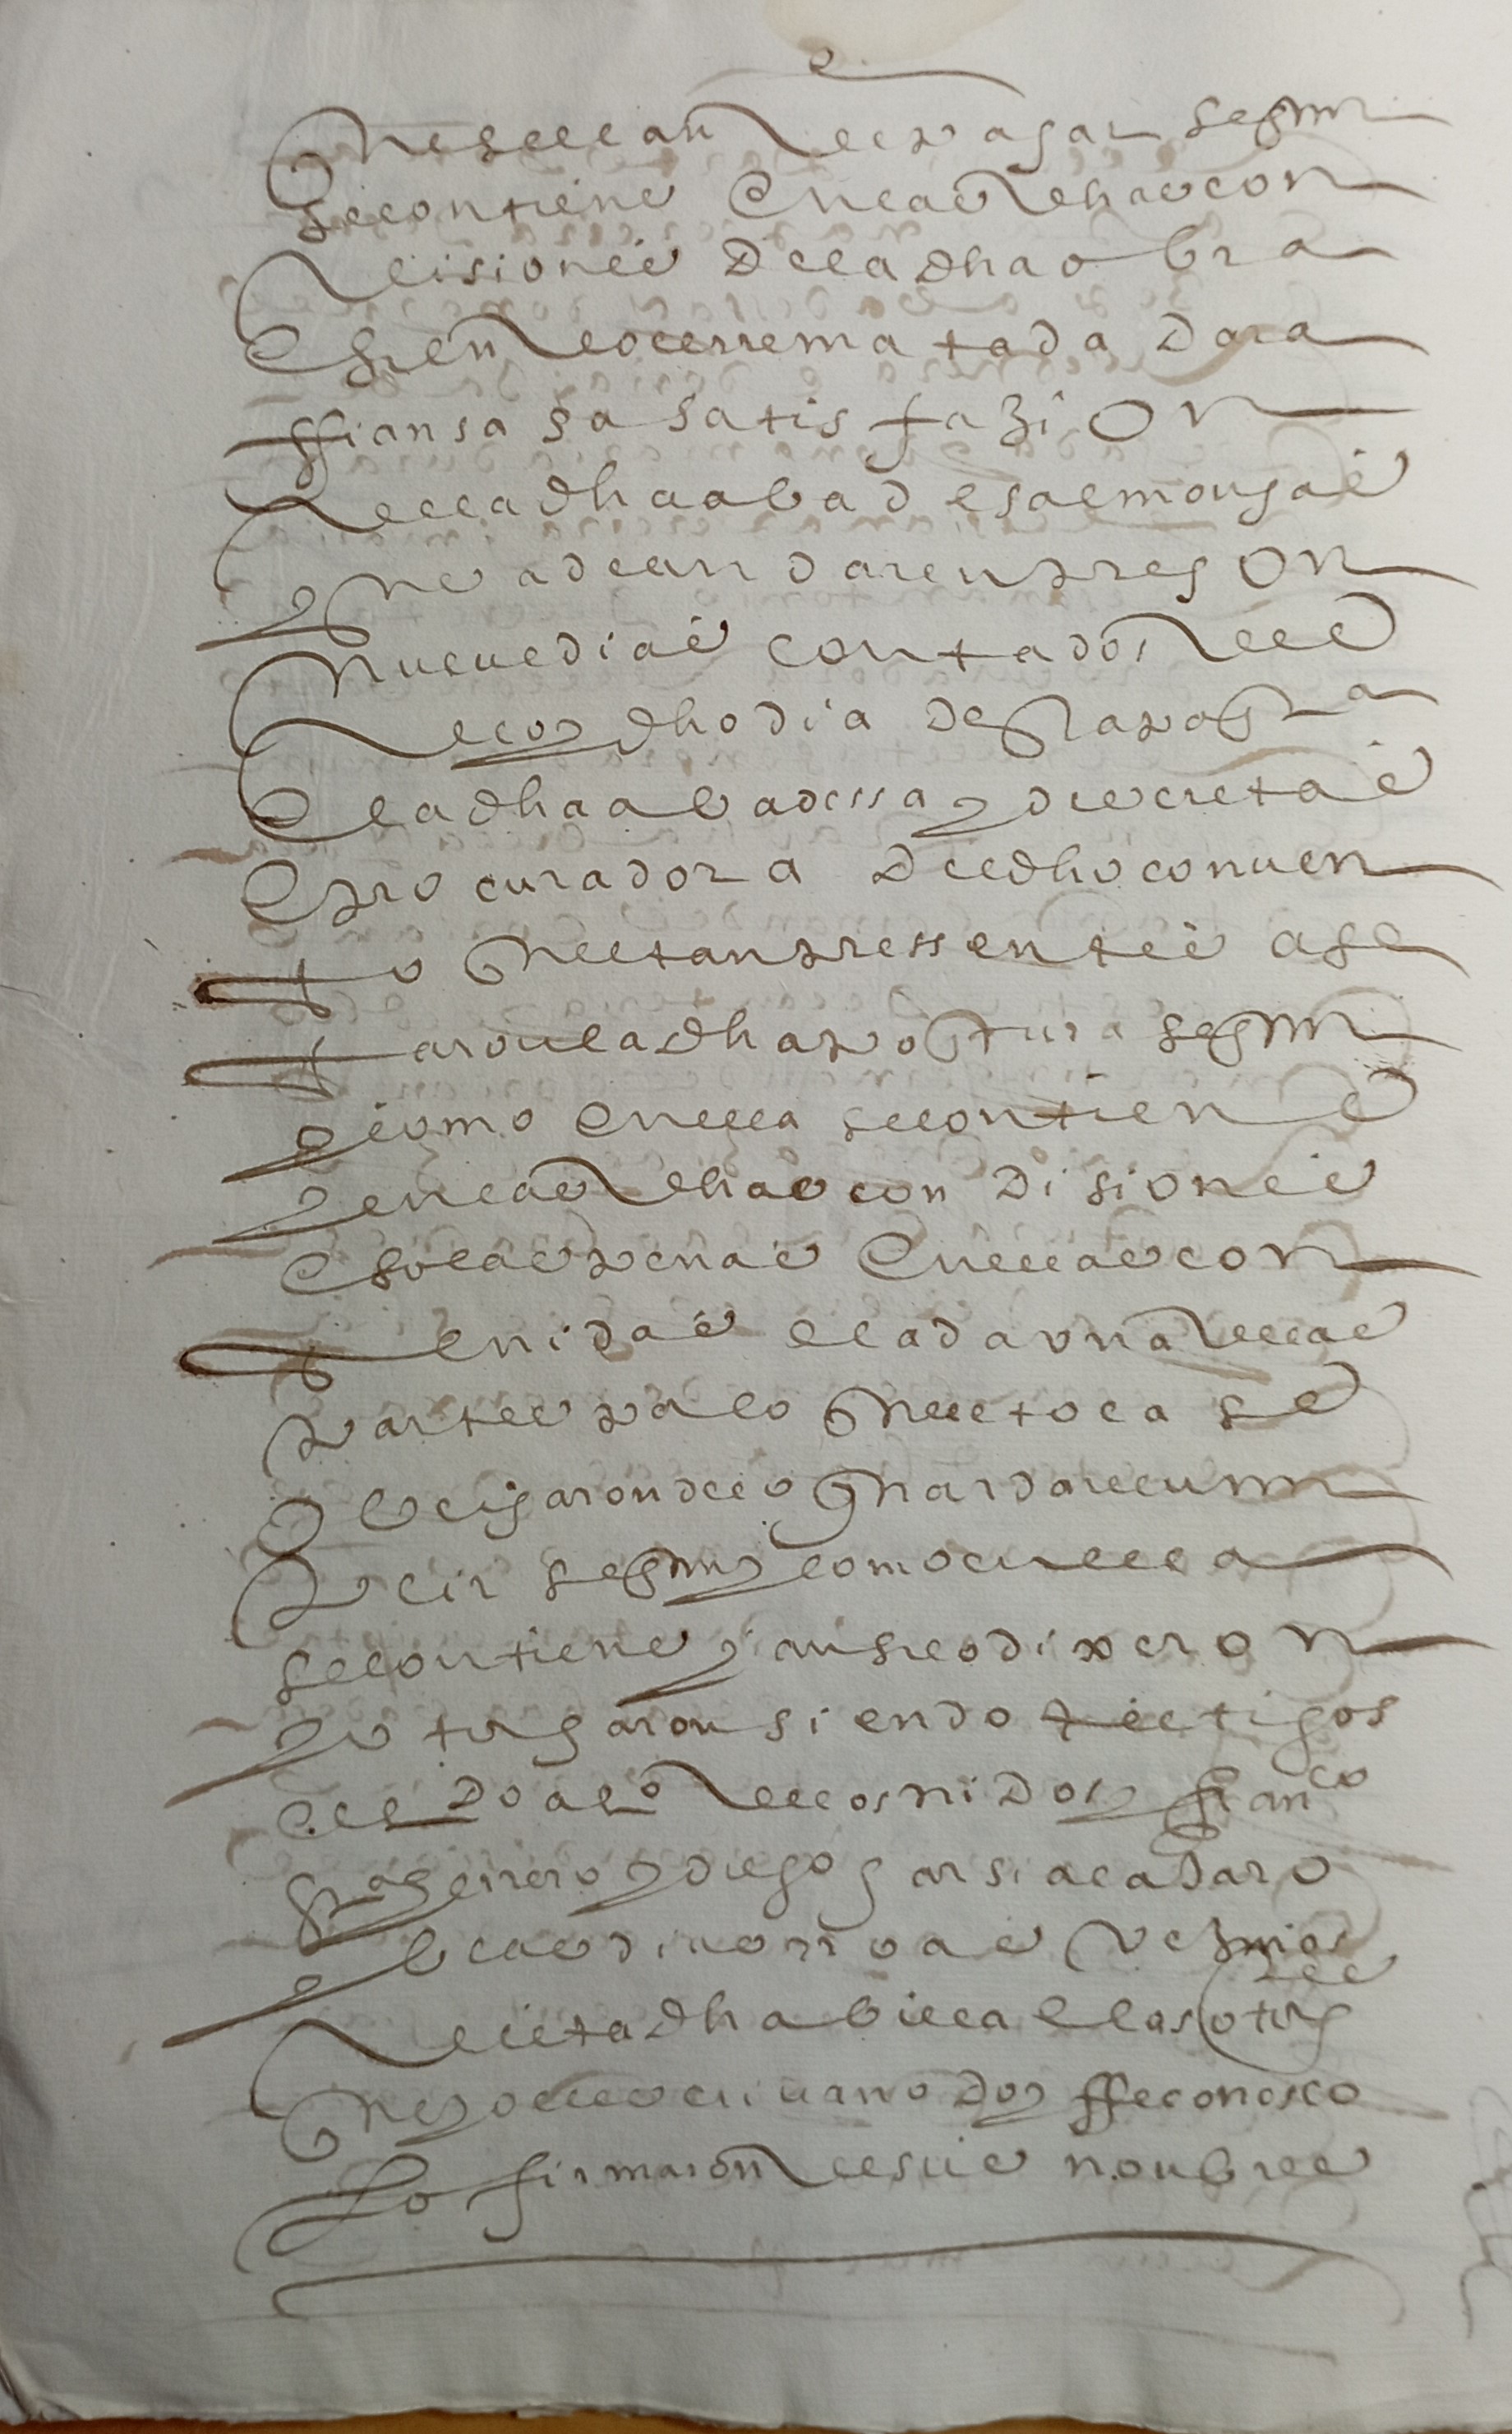 que se le an de pagar segun
se contiene en las dhas con
disiones de la dha obra
e siendole rrematada dara
ffiansa a satisfazion
de la dha abadesa e monjas
y que a de andar en pregon
nueue dias contados desde
de oy dho dia de la postura
e la dha abadessa y discretas
e procuradora del dho conuen
to que estan pressentes ase
taron la dha postura segun
y como en ella se contiene
y en las dhas condisiones
e so las penas en ellas con
tenidas e cada una dellas
partes por lo que les toca se
obligaron de lo guardar e cum
plir segun y como en ella
se contiene y ansi lo dixeron
y otorgaron siendo testigos
el do alo de leonidos y franco
gra guerrero y diego garsia catano
y blas de morroas vezinos
desta dha billa e los otorgtes
que yo el escriuano doy ffe conosco
lo firmaron de sus nonbres